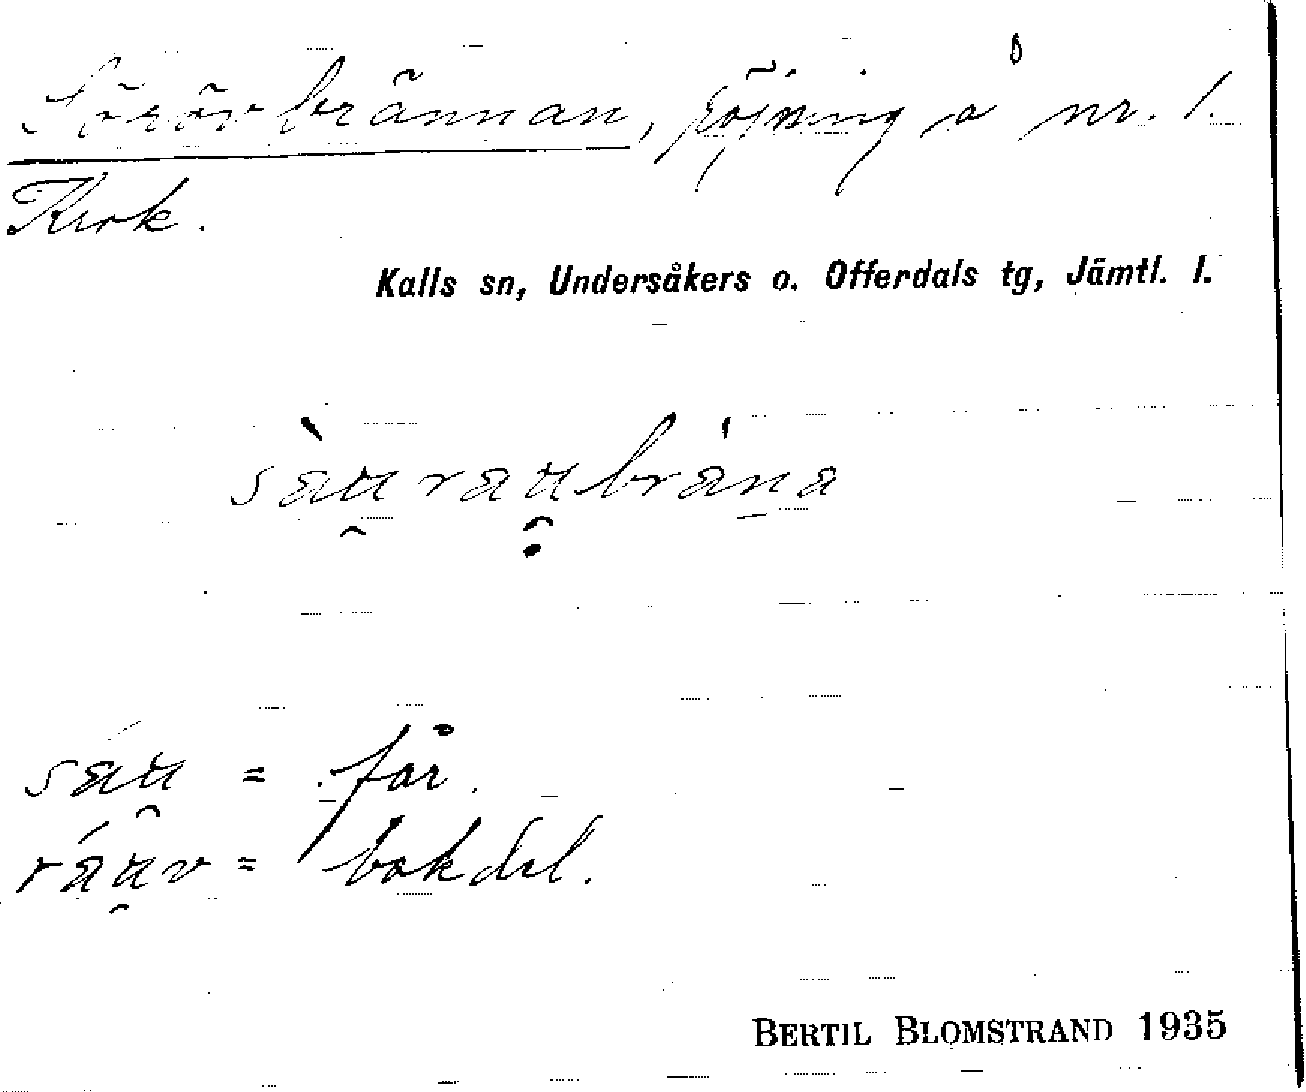 Sörövbrännan, röjning å nr. 1.
Krok.
Kalls sn, Undersåkers o. Offerdals tg, Jämtl. l.
sàu̯rau̯brána
sáu̯ = får.
ráu̯v = bakdel.
BERTIL BLOMSTRAND 1935